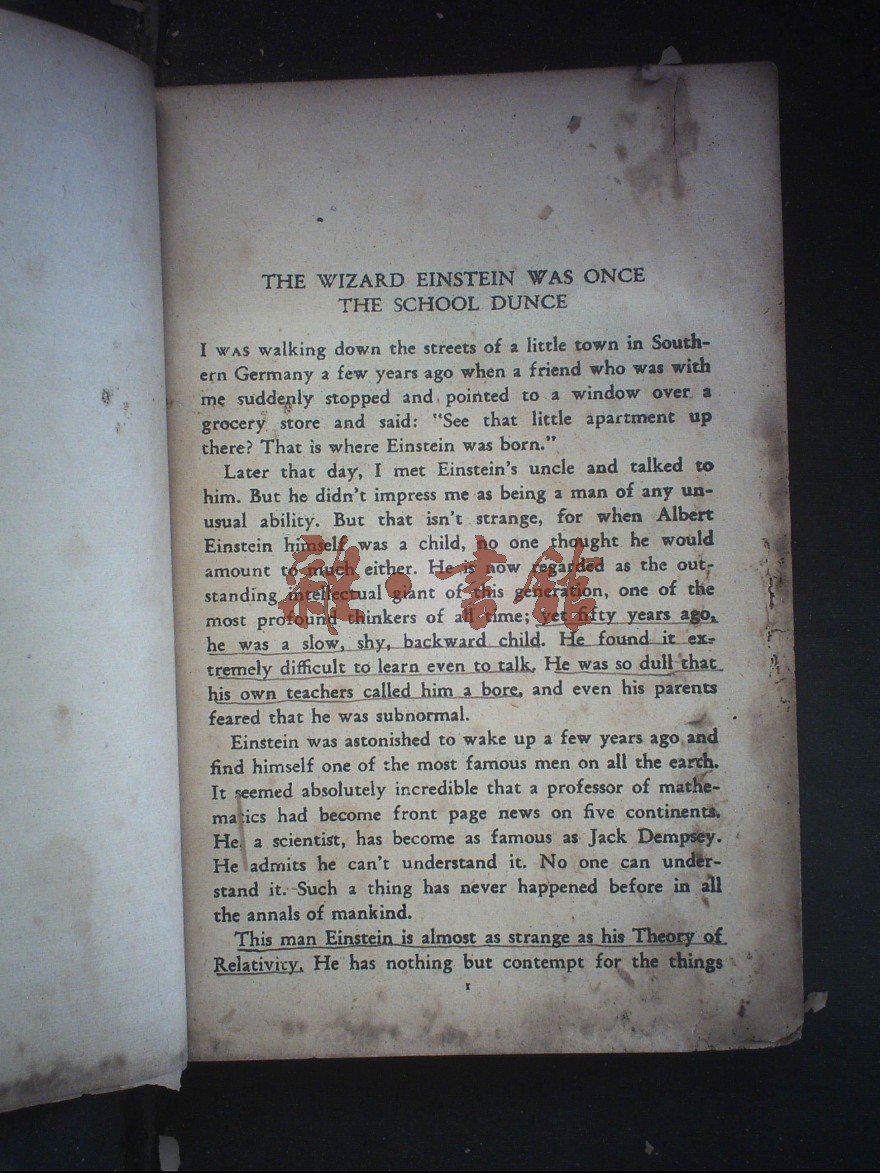 THE WIZARD EINSTEIN WAS ONCE
THE SCHOOL DUNCE
I WAS walking down the streets of a little town in South-
ern Germany a few years ago when a friend who was with
me suddenly stopped and pointed to a window over a
grocery store and said: "See that little apartment up
there? That is where Einstein was born."
Later that day, I met Einstein's uncle and talked to
him. But he didn't impress me as being a man of any un-
usual ability. But that isn't strange, for when Albert
Einstein himself was a child, no one thought he would
amount to much either. He is now regarded as the out-
standing intellectual giant of this generation, one of the
most profound thinkers of all time; yet fifty years ago,
he was a slow, shy, backward child. He found it ex-
tremely difficult to learn even to talk. He was so dull that
his own teachers called him a bore, and even his parents
feared that he was subnormal.
Einstein was astonished to wake up a few years ago and
find himself one of the most famous men on all the earth.
It seemed absolutely incredible that a professor of mathe-
matics had become front page news on five continents.
He, a scientist, has become as famous as Jack Dempsey.
He admits he can't understand it. No one can under-
stand it. Such a thing has never happened before in all
the annals of mankind.
This man Einstein is almost as strange as his Theory of
Relativity. He has nothing but contempt for the things
1
雜·書館